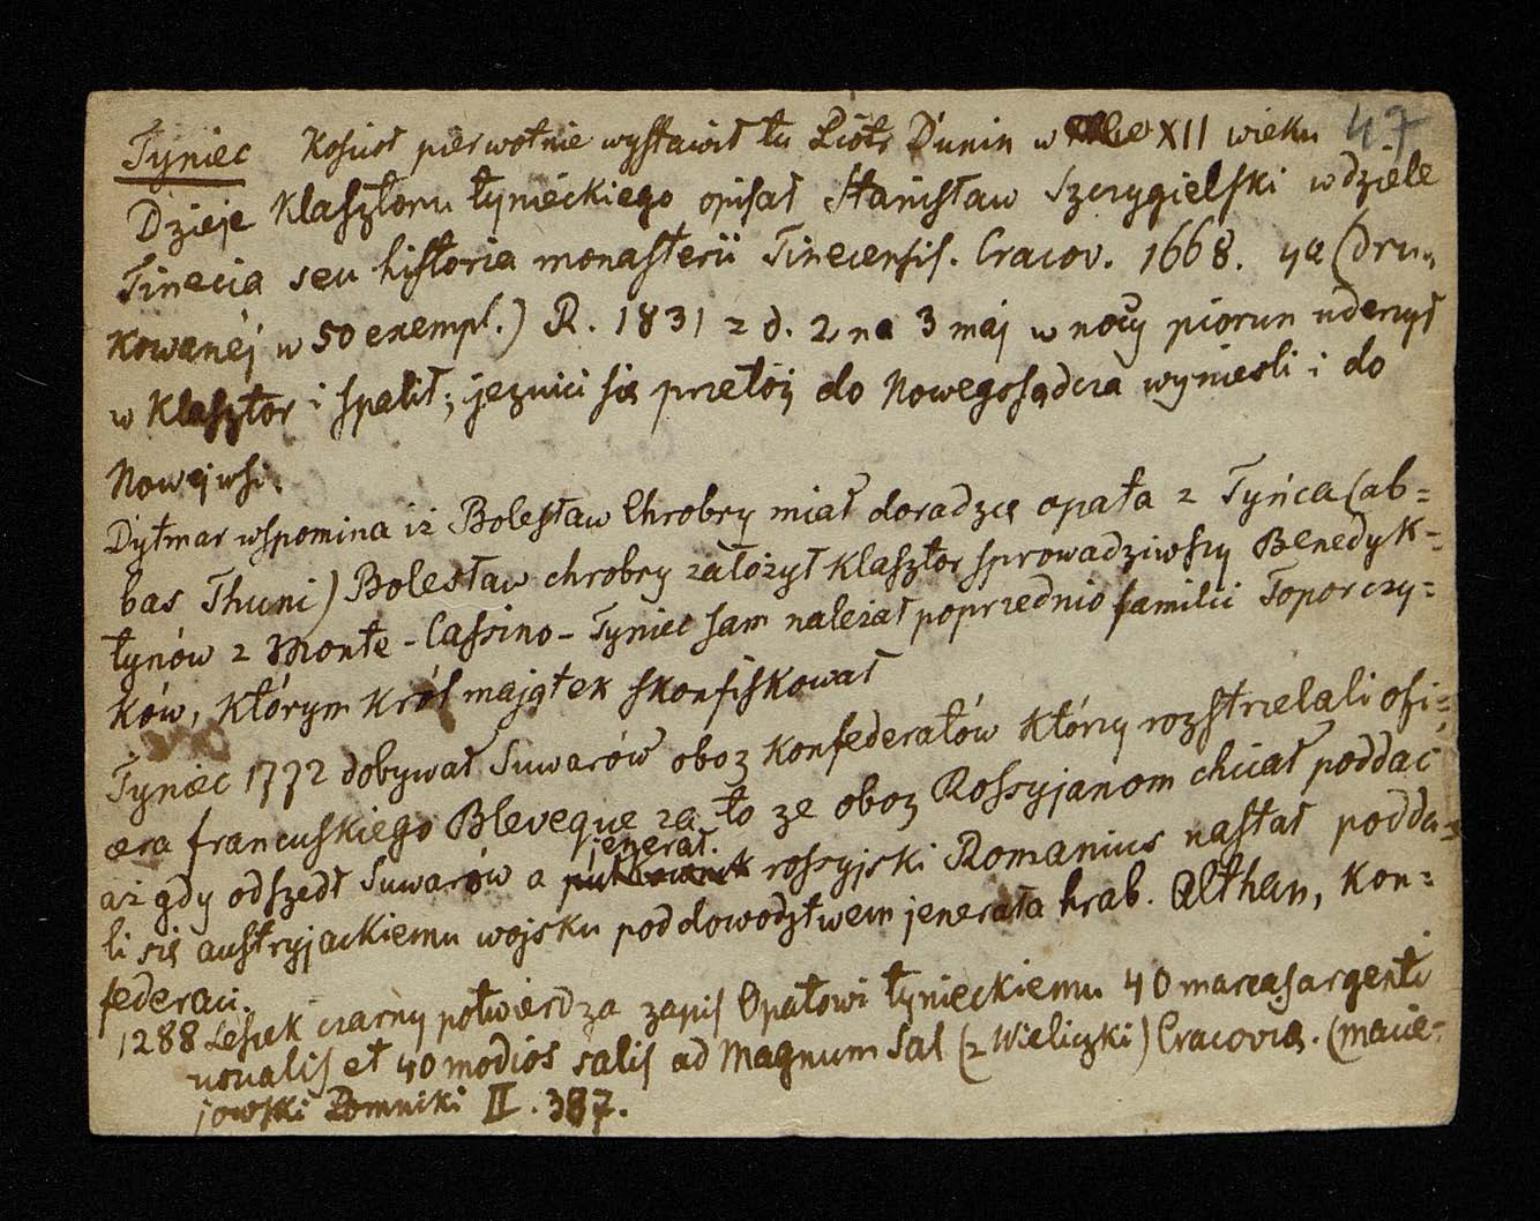 Tyniec Kosiół pierwotnie wystawił tu Piotr Dunin w XII wieku 47
Dzieje Klasztoru tynieckiego opisał Stanisław Szczygielski w dziele
Tinecia seu historia monasterii Tinecensis. Cracov. 1668. 4a (dru„
kowanéj w 50 exempl.) R. 1831 z d. 2 na 3 maj w nocy piorun uderzył
w Klasztor i spalił; jezuici się przeto do Nowegosądcza wynieśli i do
Nowéjwsi.
Dytmar wspomina iż Bolesław Chrobry miał doradzcę opata z Tyńca (ab=
bas Thuni) Bolesław chrobry założył klasztor sprowadziwszy Benedyk=
tynów z Monte-Cassino – Tyniec sam należał poprzednio familii Toporczy=
ków, którym król majątek skonfiskował
Tyniec 1772 dobywał Suwarów oboz Konfederatów którzy rozstrzelali ofi=
cera francuskiego Bleveque za to ze oboz Rossyjanom chciał poddac
aż gdy odszedł Suwarów a jenerał. rossyjski Romanius nastał podda=
li się austryjackiemu wojsku pod dowodztwem jenerała hrab. Althan, Kon=
federaci.
1288 Leszek czarny potwierdza zapis Opatowi tynieckiemu 40 marcas argenti
usualis et 40 modios salis ad Magnum Sal (z Wieliczki) Cracovia. (Macie=
jowski Pomniki II. 387.